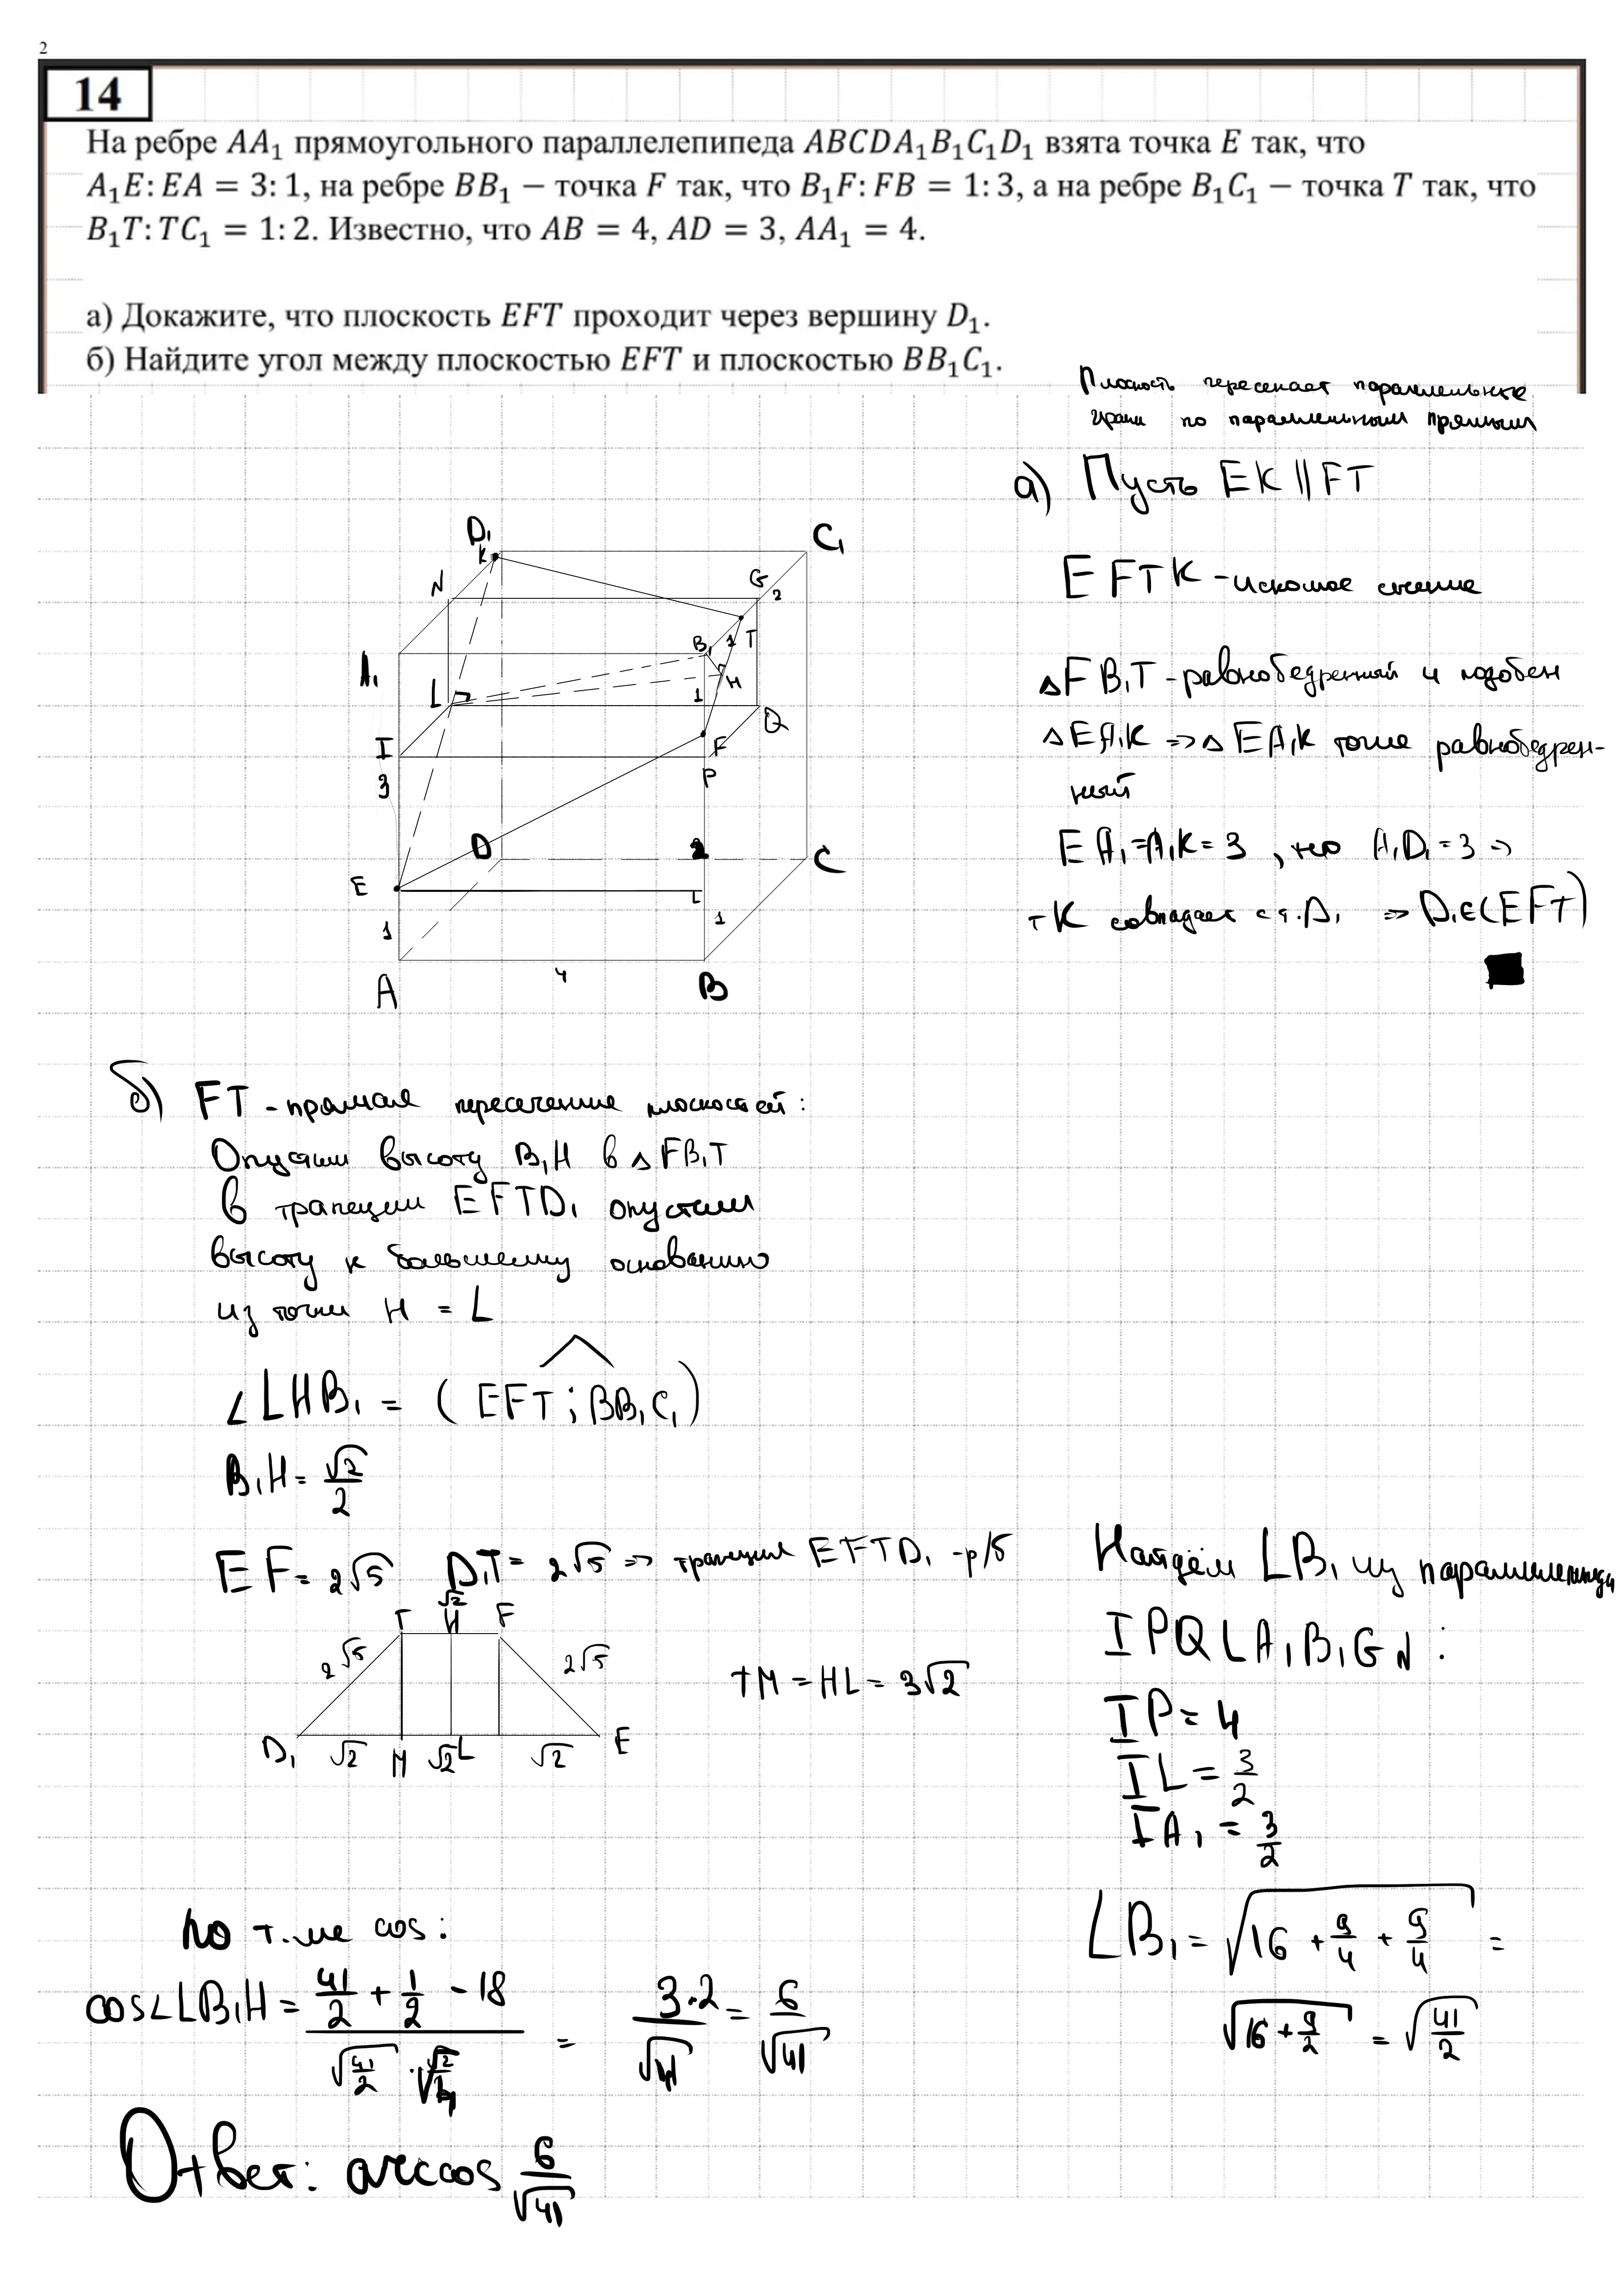 2
14
На ребре AA₁ прямоугольного параллелепипеда ABCDA₁B₁C₁D₁ взята точка E так, что
A₁E: EA = 3: 1, на ребре BB₁ − точка F так, что B₁F: FB = 1: 3, а на ребре B₁C₁ − точка T так, что
B₁T: TC₁ = 1: 2. Известно, что AB = 4, AD = 3, AA₁ = 4.
а) Докажите, что плоскость EFT проходит через вершину D₁.
б) Найдите угол между плоскостью EFT и плоскостью BB₁C₁.
Плоскость пересекает параллельные
грани по параллельным прямым
а) Пусть EK || FT
EFTK - искомое сечение
△FB₁T - равнобедренный и подобен
△EA₁K => △EA₁K тоже равнобедрен-
ный
EA₁=A₁K=3 , но A₁D₁=3 =>
тK совпадает с т.D₁ => D₁∈(EFT)
D₁
K
C₁
N
G
2
B₁
1
T
A₁
L
H
1
Q
I
F
3
P
D
2
C
E
L
1
1
4
A
B
б) FT - прямая пересечение плоскостей:
Опустим высоту B₁H в △FB₁T
В трапеции EFTD₁ опустим
высоту к большему основанию
из точки H = L
∠LHB₁ = (EFT; BB₁C₁)
B₁H = √2/2
EF = 2√5 D₁T = 2√5 => трапеция EFTD₁ - р/б
√2
T H F
2√5 2√5
D₁ √2 M √2 L √2 E
TM = HL = 3√2
Найдём LB₁ из параллелепипеда
IPQLA₁B₁GN :
IP = 4
IL = 3/2
IA₁ = 3/2
LB₁ = √(16 + 9/4 + 9/4) =
√(16 + 9/2) = √(41/2)
по т.ме cos:
cos∠LB₁H = (41/2 + 1/2 - 18)/
= 3·2/√41 = 6/√41
Ответ: arccos 6/√41